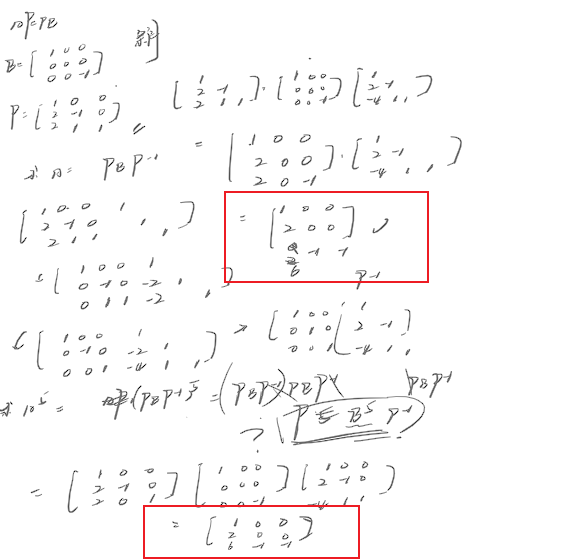 AP=PB
B=[1 0 0
0 0 0
0 0 -1]
P=[1 0 0
2 -1 0
2 1 1]
求 A= PBP⁻¹
[1 0 0 1
2 -1 0 1
2 1 1 1]
[1 0 0 1
0 -1 0 -2 1
0 1 1 -2 1]
[1 0 0 1
0 -1 0 -2 1
0 0 1 -4 1 1]
[1
2 -1
2 1 1]·[1 0 0
0 0 0
0 0 -1][1
2 -1
-4 1 1]
=[1 0 0
2 0 0
2 0 -1]·[1
2 -1
-4 1 1]
=[1 0 0
2 0 0
6 -1 -1]
P⁻¹
[1 0 0 1
0 1 0 2 -1
0 0 1 -4 1 1]
求 A⁵= (PBP⁻¹)⁵ =(PBP⁻¹)(PBP⁻¹ PBP⁻¹
? P B⁵ P⁻¹ ?
=[1 0 0
2 -1 0
2 0 1][1 0 0
0 0 0
0 0 -1][1 0 0
2 -1 0
-4 1 1]
=[1 0 0
2 0 0
6 -1 -1]